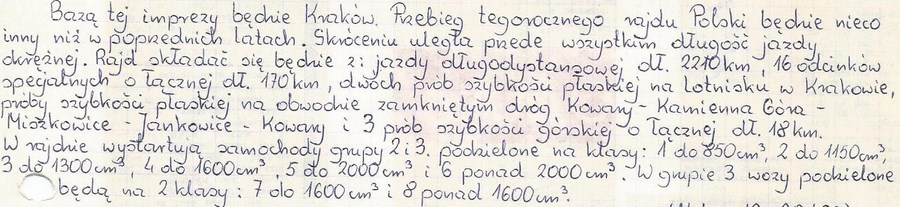 Bazą tej imprezy będzie Kraków. Przebieg tegorocznego rajdu Polski będzie nieco
inny niż w poprzednich latach. Skróceniu uległa przede wszystkim długość jazdy
okrężnej. Rajd składać się będzie z: jazdy długodystansowej dł. 2210 km, 16 odcinków
specjalnych o łącznej dł. 170 km, dwóch prób szybkości płaskiej na lotnisku w Krakowie,
próby szybkości płaskiej na obwodzie zamkniętym dróg Kowary - Kamienna Góra -
Miszkowice - Jankowice - Kowary i 3 prób szybkości górskiej o łącznej dł. 18 km.
W rajdzie wystartują samochody grupy 2 i 3. podzielone na klasy: 1 do 850 cm³, 2 do 1150 cm³,
3 do 1300 cm³, 4 do 1600 cm³, 5 do 2000 cm³ i 6 ponad 2000 cm³. W grupie 3 wozy podzielone
będą na 2 klasy: 7 do 1600 cm³ i 8 ponad 1600 cm³.